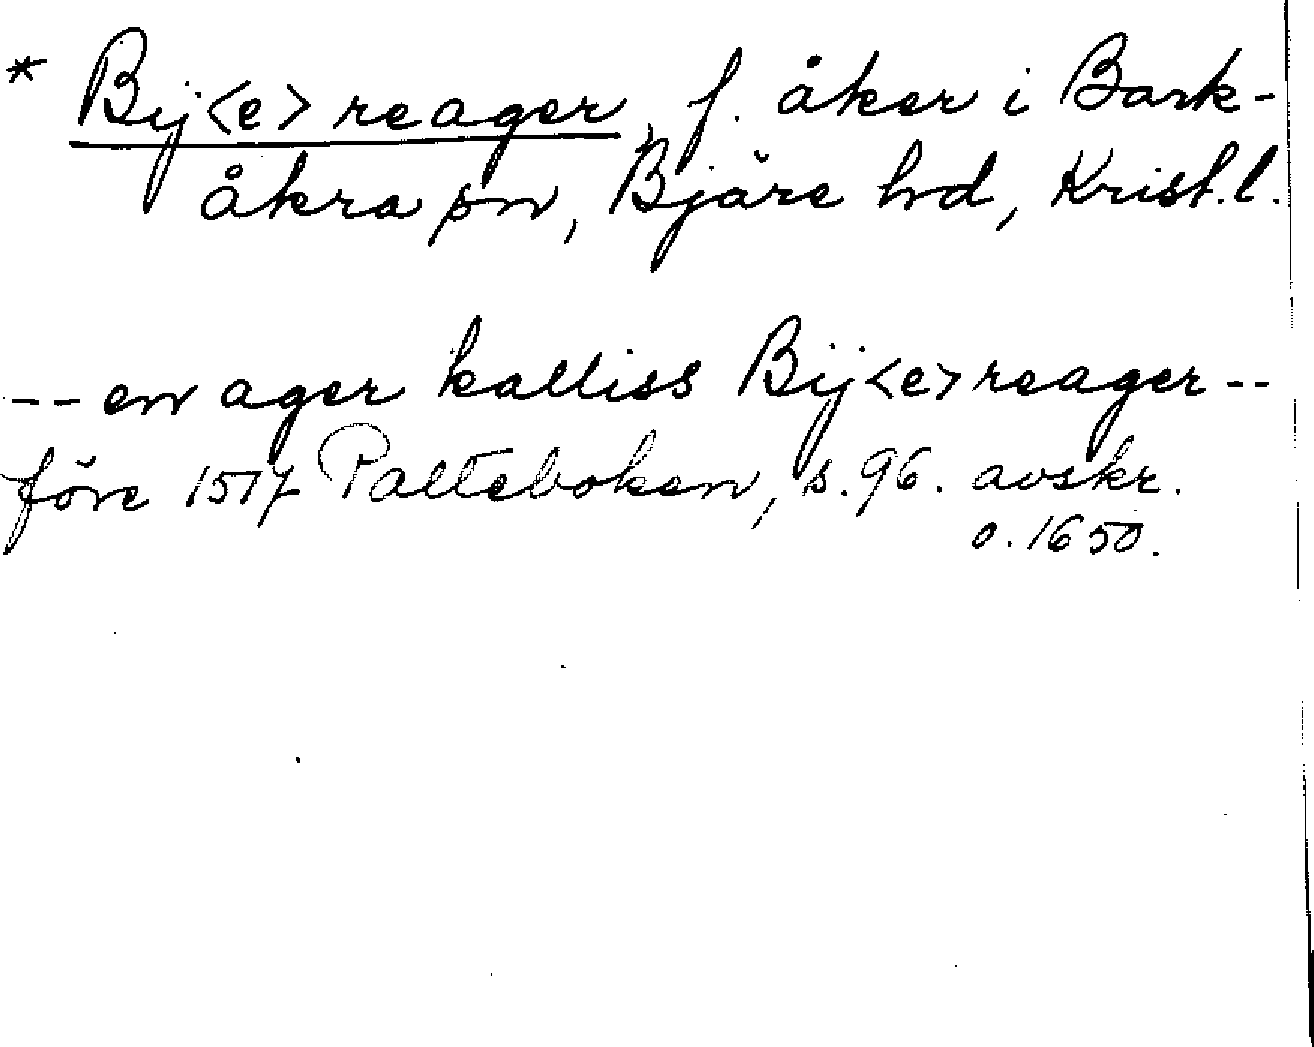 * Bij<e>reager, f. åker i Bark-
åkra sn, Bjäre hd, Krist.l.
-- en ager kalliss Bij<e>reager --
före 1517 Palteboken, s. 96. avskr.
o. 1650.